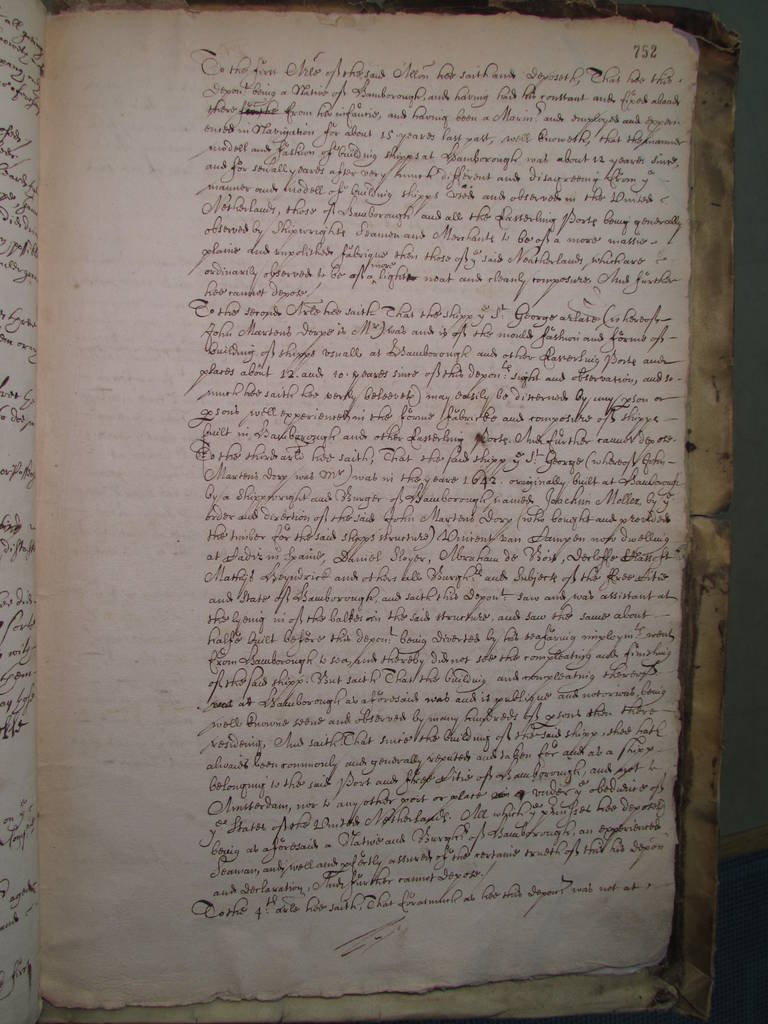 752
To the first Arle of the said Allon hee saith and deposeth, That hee this
depont being a Native of Hamborough, and having had his constant and fixed aboad
there from his infancie, and having been a Marinr and employed and experi
enced in Navigation for about 15 yeares last past, well knoweth, that the manner
modell and fashion of building shipps at Hamborough was about 12 yeares since,
and for severall yeares after very much different and disagreeing from ye
manner and modell of building shipps used and observed in the United
Netherlands, those of Hamborough and all the Easterling Ports being generally
observed by Shipwrights Seamen and Merchants to be of a more massie
plaine and unpolished fabrique then those of ye said Neatherlands, which are
ordinarily observed to be of a more light neat and cleanly composure. And further
hee cannot depose.
To the second Arle hee saith That the shipp ye St. George arlate (whereof
John Martens Dorpe is Mr) was and is of the mould fashion and forme of
building of shipps usuall at Hamborough and other Easterling Ports and
places about 12 and 10 yeares since of this deponts sight and observation, and so
much hee saith hee verily beleeveth may easily be discerned by any pson or
psons well experienced in the forme fabricke and composure of shipps
built in Hamborough and other Easterling Ports. And further cannot depose.
To the third arle hee saith, That the said shipp ye St. George (whereof John
Martens Dorp was Mr) was in the yeare 1642 originally built at Hamborough
by a shippwright and Burger of Hamborough, named Joachim Moller, by ye
order and direction of the said John Martens Dorp (who bought and provided
the timber for the said shipps structure) Vincent van Campen now dwelling
at Cadiz in Spaine, Daniel Sloyer, Abraham de Bois,
Mathijs Heyndrick and others all Burghrs and Subjects of the free Citie
and State of Hamborough, and saith this depont saw and was assistant at
the lyeing in of the balkes in the said structure, and saw the same about
halfe built before this depont being diverted by his seafaring imploymt went
from Hamborough to sea, and thereby did not see the compleating and finishing
of the said shipp. But saith That the building and compleating thereof
at Hamborough as aforesaid was and is publique and notorious, being
well knowne seene and observed by many hundreds of psons then there
residing, And saith That since the building of the said shipp, shee hath
alwaies been commonly and generally reputed and taken for and as a shipp
belonging to the said Port and free Citie of Hamborough, and not to
Amsterdam, nor to any other port or place under ye obedience of
ye States of the United Netherlands. All which ye pmisses hee deposeth
being as aforesaid a Native and Burghr of Hamborough, an experienced
Seaman, and well and pfectly assured of the certaine trueth of this his depon
and declaration, And further cannot depose.
To the 4th arle hee saith, That forasmuch as hee this depont was not at